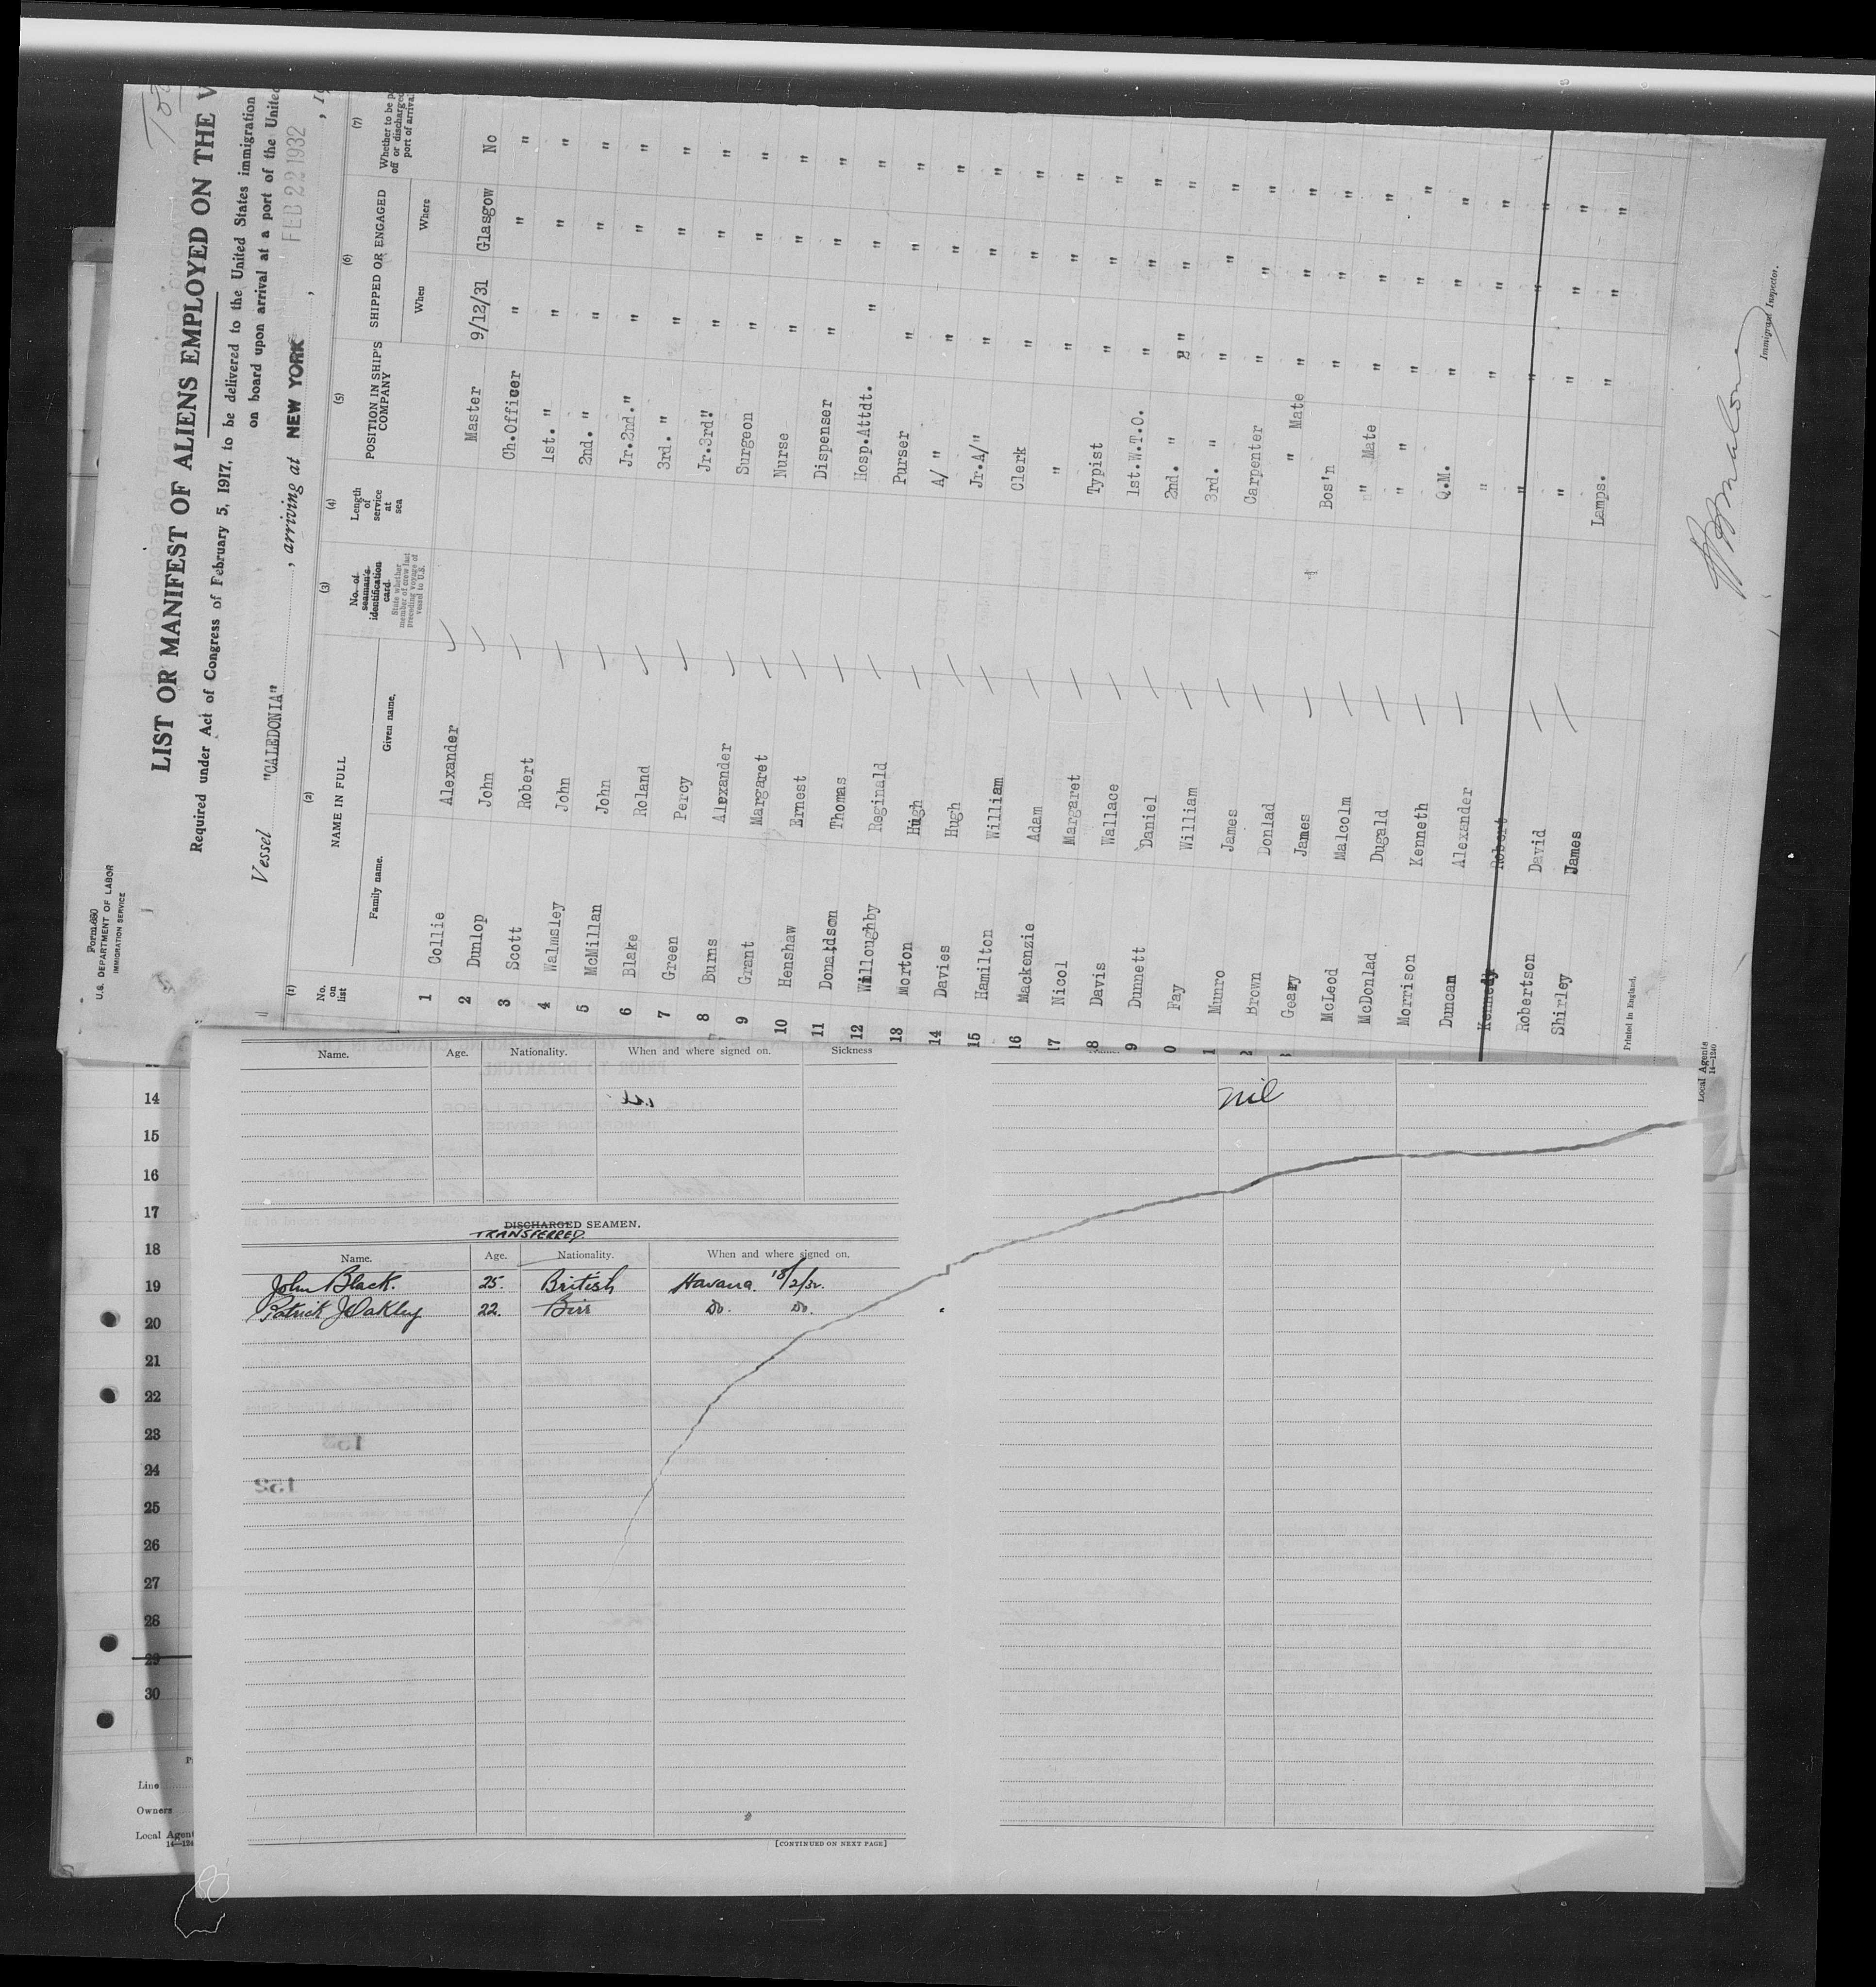 Form 680
U.S. DEPARTMENT OF LABOR
IMMIGRATION SERVICE
LIST OR MANIFEST OF ALIENS EMPLOYED ON THE V
Required under Act of Congress of February 5, 1917, to be delivered to the United States immigration
on board upon arrival at a port of the United
Vessel "CALEDONIA", arriving at NEW YORK, FEB 22 1932, 19
(1) (2) (3) (4) (5) (6) (7)
No. on list NAME IN FULL Family name. Given name. No. of seaman's identification card. State whether member of crew last preceding voyage of vessel to U.S. Length of service at sea POSITION IN SHIP'S COMPANY SHIPPED OR ENGAGED When Where Whether to be p off or discharged port of arrival
1 Collie Alexander Master 9/12/31 Glasgow No
2 Dunlop John Ch.Officer " " "
3 Scott Robert 1st. " " " "
4 Walmsley John 2nd. " " " "
5 McMillan John Jr.2nd. " " " "
6 Blake Roland 3rd. " " " "
7 Green Percy Jr.3rd." " " "
8 Burns Alexander Surgeon " " "
9 Grant Margaret Nurse " " "
10 Henshaw Ernest Dispenser " " "
11 Donaldson Thomas Hosp.Attdt. " " "
12 Willoughby Reginald Purser " " "
13 Morton Hugh A/ " " " "
14 Davies Hugh Jr.A/" " " "
15 Hamilton William Clerk " " "
16 Mackenzie Adam " " " "
17 Nicol Margaret Typist " " "
8 Davis Wallace 1st.W.T.O. " " "
9 Dunnett Daniel 2nd. " " " "
0 Fay William 3rd. " " " "
1 Munro James Carpenter " " "
2 Brown Donlad " Mate " " "
3 Geary James Bos'n " " "
McLeod Malcolm " Mate " " "
McDonlad Dugald " " " " "
Morrison Kenneth Q.M. " " "
Duncan Alexander " " " "
Kennedy Robert " " " "
Robertson David " " " "
Shirley James Lamps. " " "
Printed in England.
Local Agents
14—1240
Immigrant Inspector.
Name. Age. Nationality. When and where signed on. Sickness
nil
DISCHARGED SEAMEN.
TRANSFERRED
Name. Age. Nationality. When and where signed on.
John Black. 25. British Havana 18/2/32.
Patrick J Oakley 22. Birr Do. Do.
[CONTINUED ON NEXT PAGE]
14
15
16
17
18
19
20
21
22
23
24
25
26
27
28
29
30
Line
Owners
Local Agent
14—124